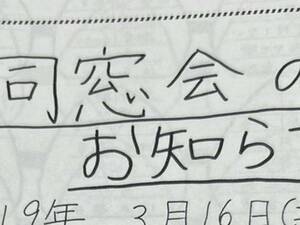 同窓会の
お知らせ
19年 3月16日(土